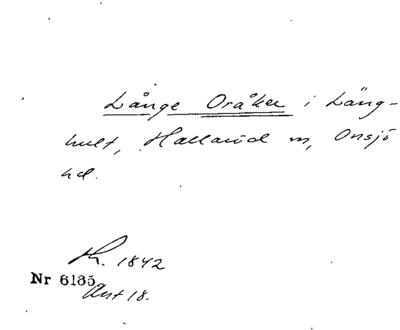 Långe Oråker i Läng-
hult, Hallaröd sn, Onsjö
hd.
Th. 1842
Nr 6185
Avt 18.